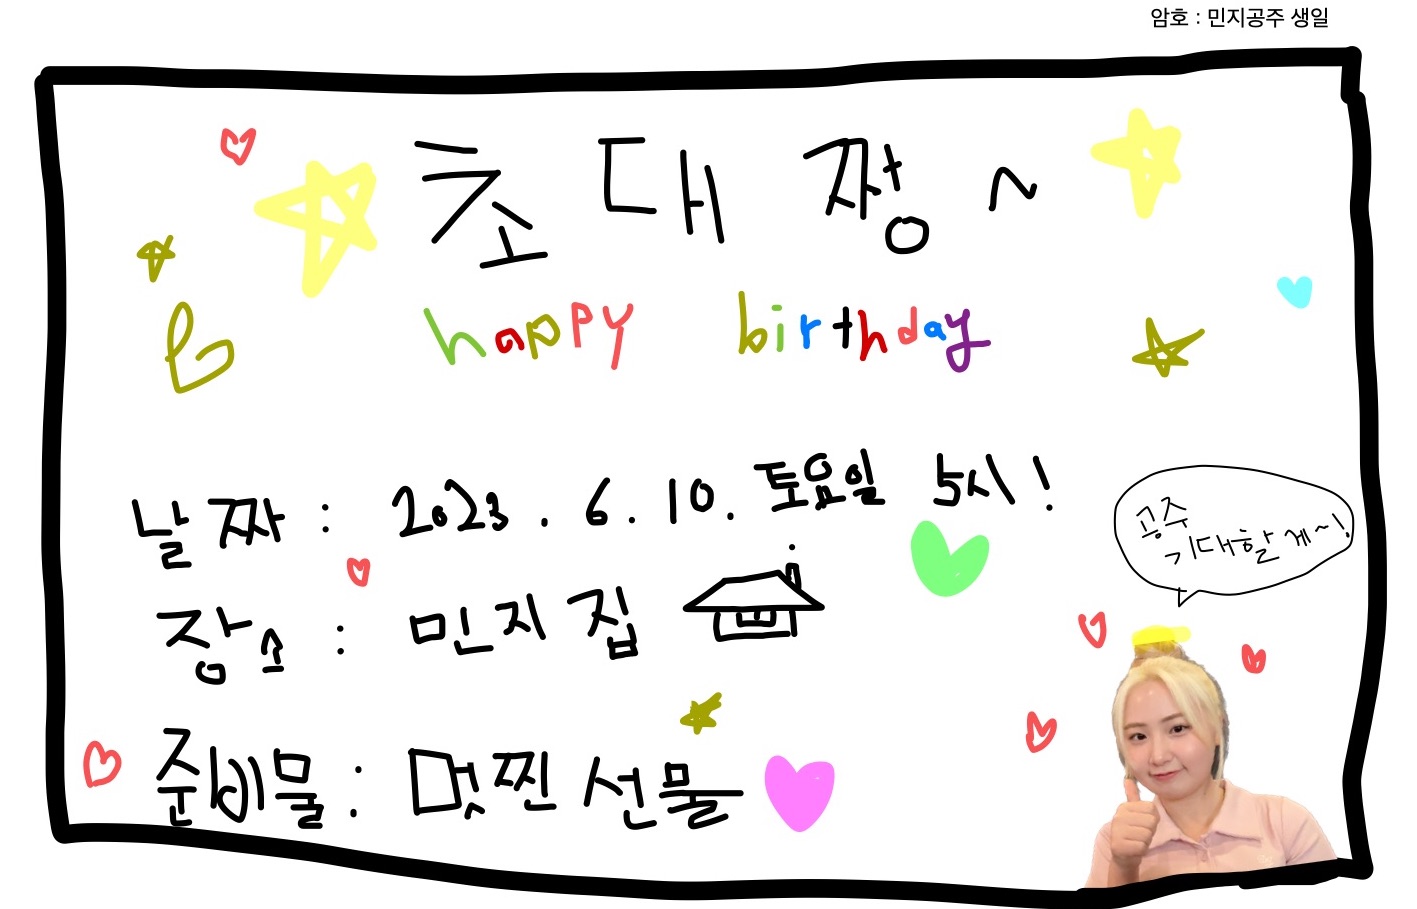 암호 : 민지공주 생일
초대짱~
happy birthday
날짜 : 2023. 6. 10. 토요일 5시!
장소 : 민지집
준비물 : 멋찐 선물
공주
기대할게~!